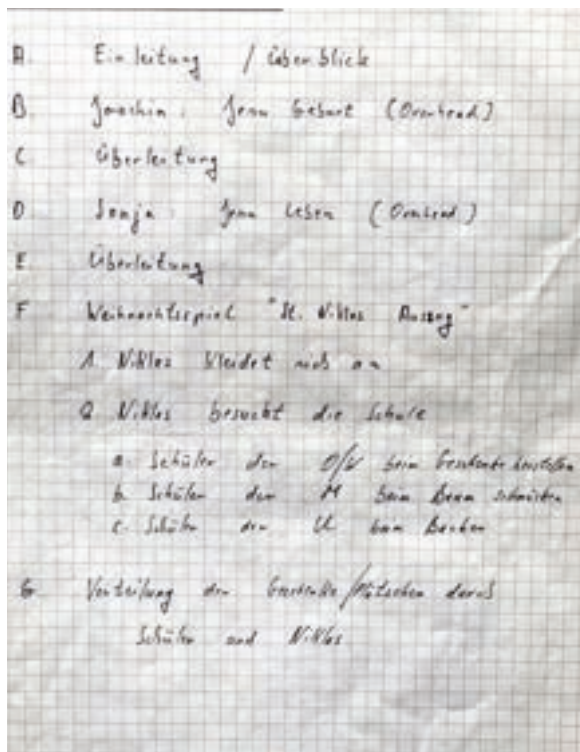 A. Einleitung / Überblick
B. Joachim: Jesu Geburt (Overhead)
C Überleitung
D. Sonja: Jesu Leben (Overhead)
E Überleitung
F Weihnachtsspiel "St. Niklas Auszug"
1. Niklas kleidet sich an
2 Niklas besucht die Schule
a. Schüler der O/W beim Geschenke herstellen
b. Schüler der M beim Baum schmücken
c. Schüler der U beim Backen
G Verteilung der Geschenke/Plätzchen durch
Schüler und Niklas